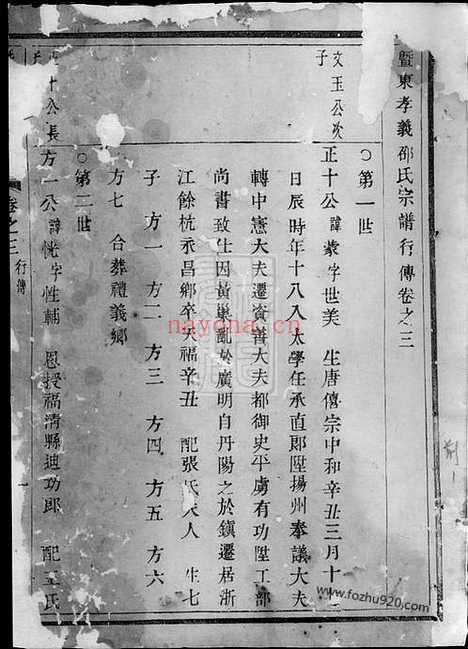 暨東孝義邵氏宗譜行傳卷之三
○第一世
文玉公次
子
正十公諱蒙字世美 生唐僖宗中和辛丑三月十
日辰時年十八入太學任承直郎陞揚州奉議大夫
轉中憲大夫遷資善大夫都御史平虜有功陞工部
尚書致仕因黃巢亂於廣明自丹陽之於鎮遷居浙
江餘杭永昌鄉卒天福辛丑 配張氏夫人 生七
子 方一 方二 方三 方四 方五 方六
方七 合葬禮義鄉
○第二世
十公長
方一公諱恍字性輔 恩授福清縣迪功郎 配 氏
卷之三 行傳
一
nayona.cn
www.fozhu920.com